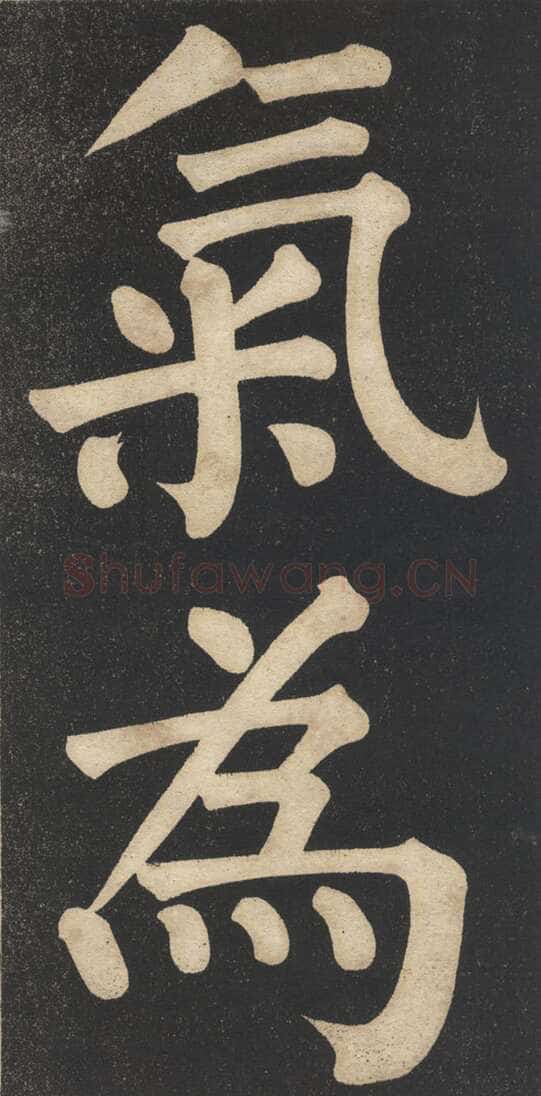 氣為
Shufawang.CN